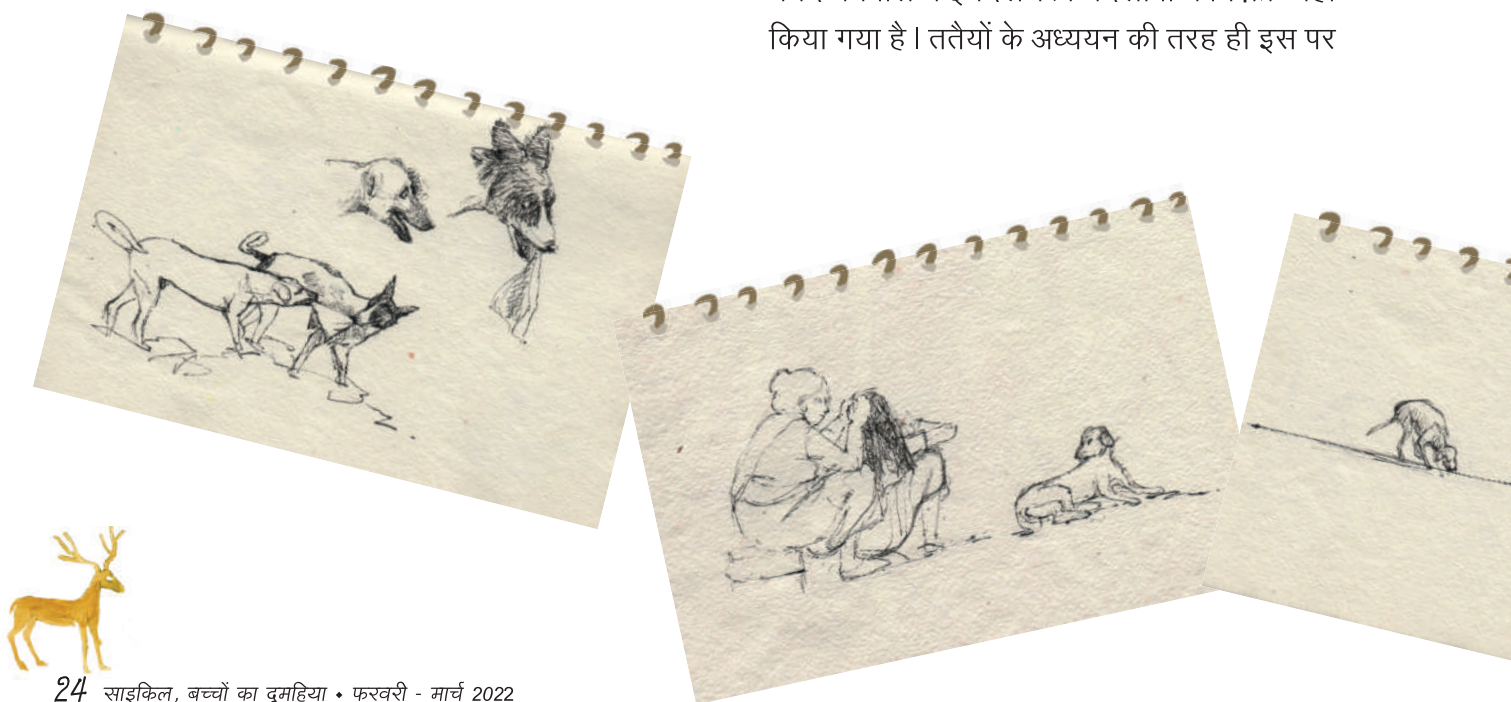 किया गया है। ततैयों के अध्ययन की तरह ही इस पर
24 साइकिल, बच्चों का दुमहिया • फरवरी - मार्च 2022